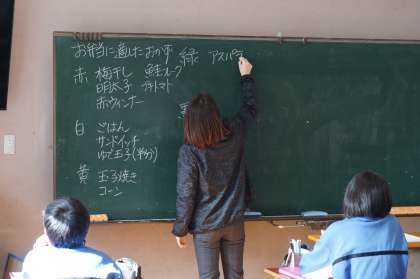 お弁当に適したおかず
赤 梅干し 鮭フレーク
明太子 プチトマト
赤ウィンナー
白 ごはん
サンドイッチ
ゆで玉子(半分)
黄 玉子焼き
コーン
緑 アスパラ